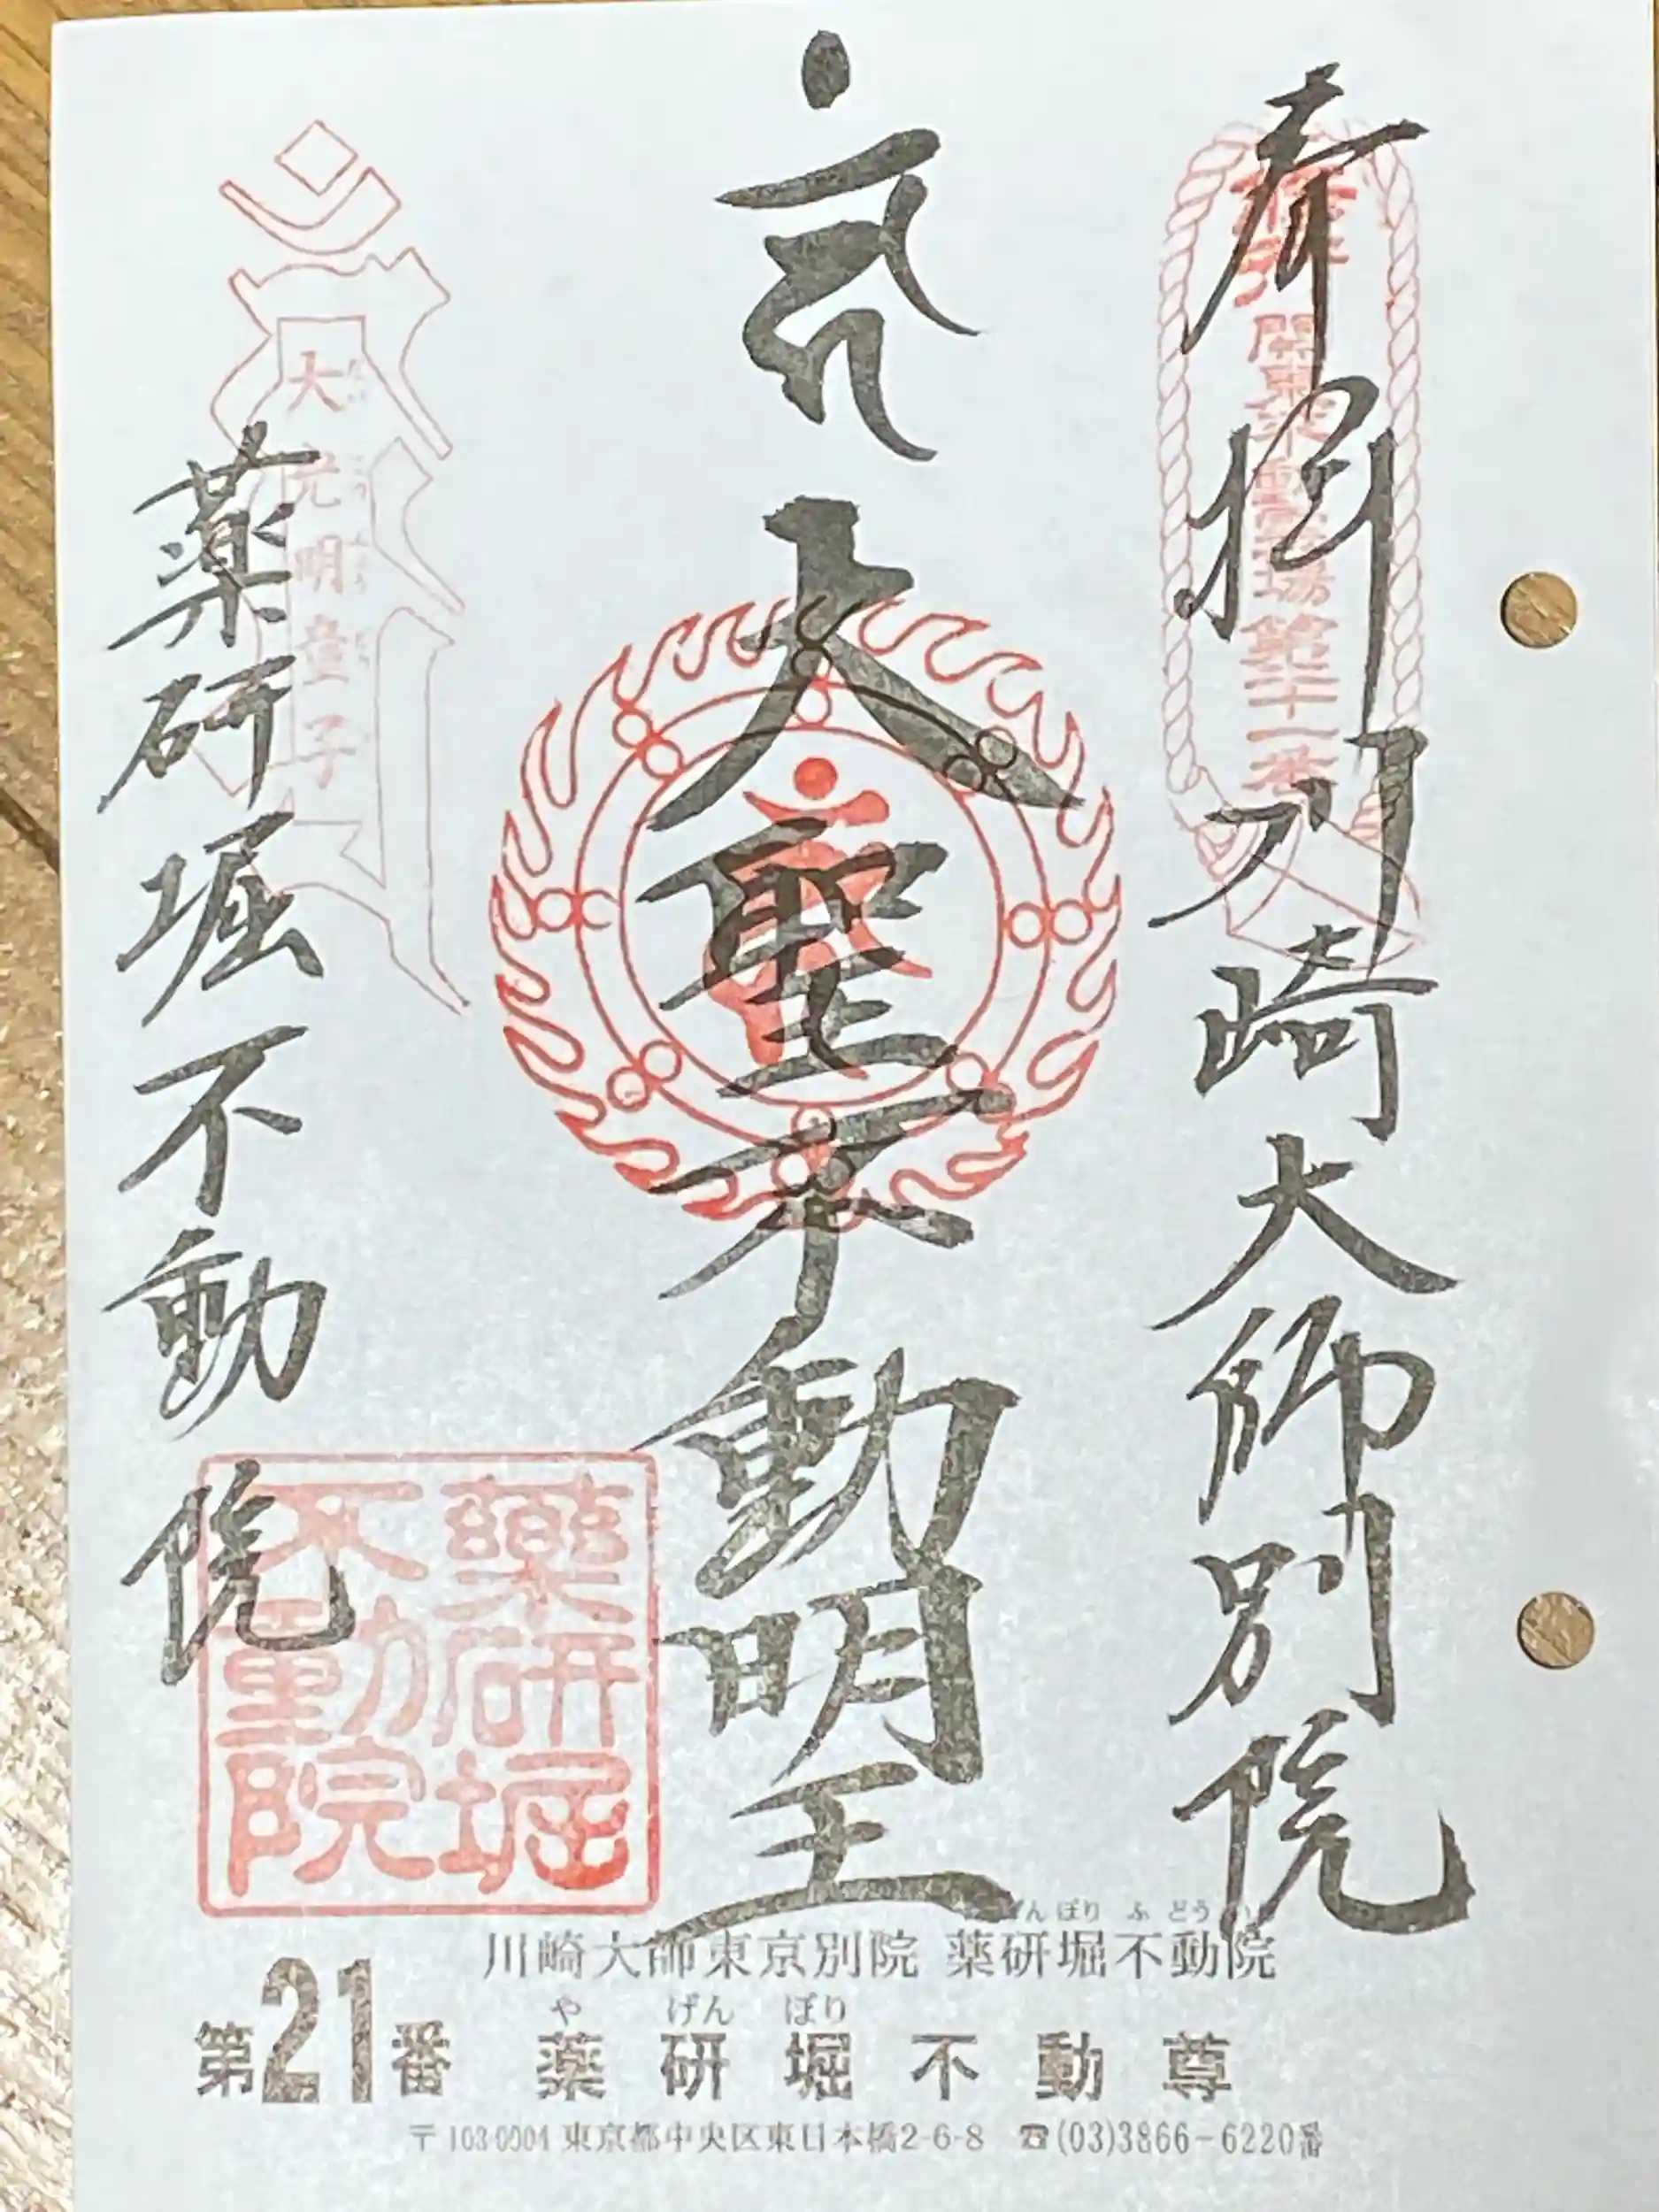 奉拝川崎大師別院
奉拝
関東三十六不動霊場第二十一番
大聖不動明王
薬研堀不動院
大光明童子
薬研堀
不動院
川崎大師東京別院 薬研堀不動院
やげんぼり
第21番 薬研堀不動尊
〒103-0004 東京都中央区東日本橋2-6-8 ☎(03)3866-6220番